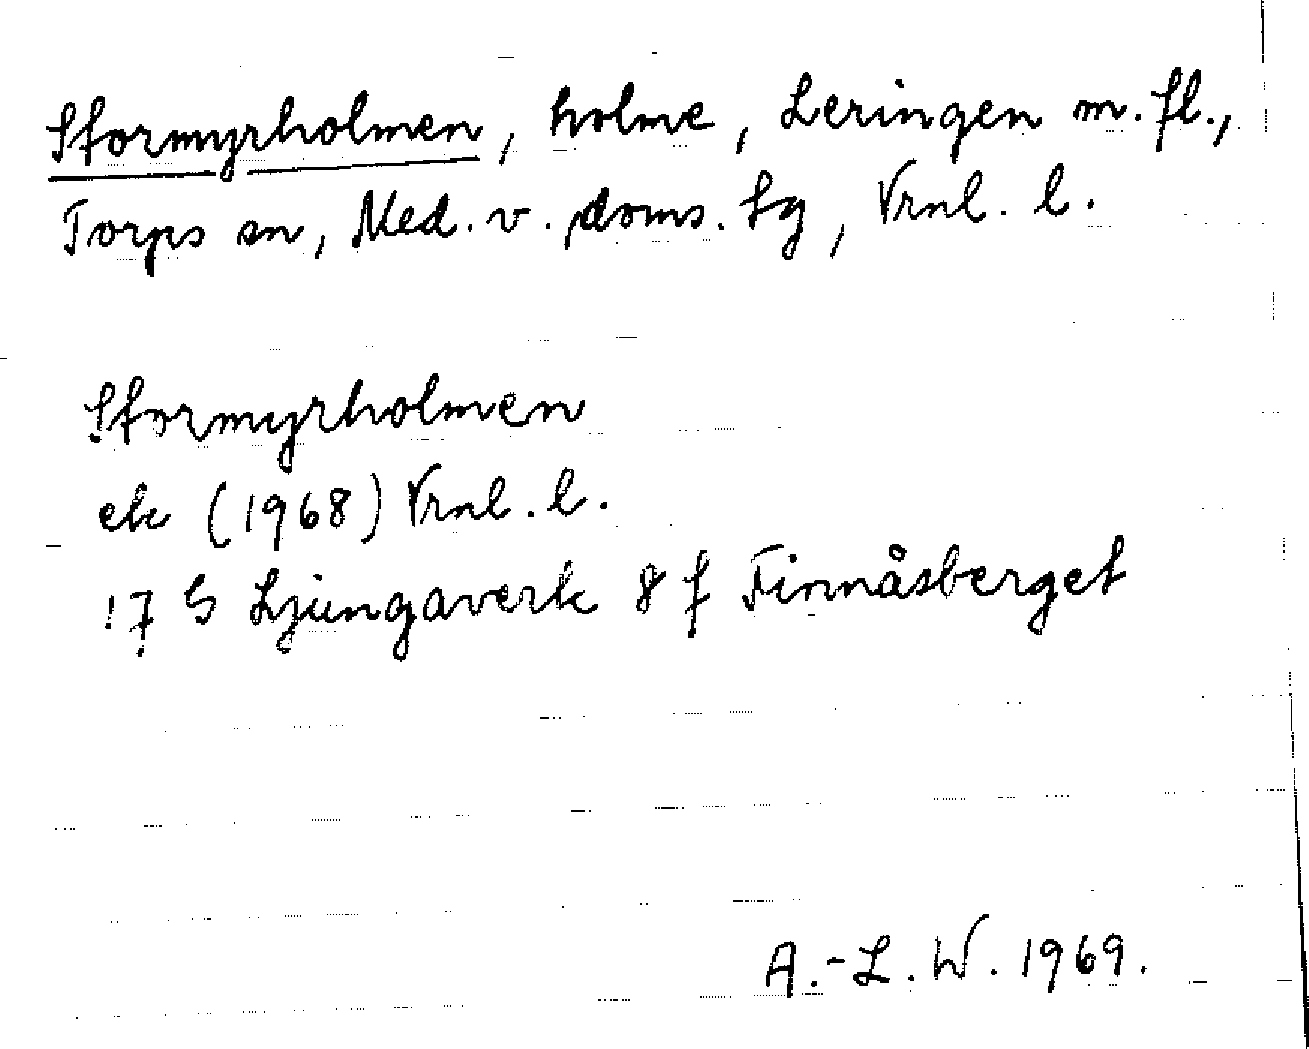 Stormyrholmen, holme, Leringen m. fl.,
Torps sn, Med. v. doms. tg, Vrnl. l.
Stormyrholmen
ek (1968) Vrnl. l.
17 G Ljungaverk 8 f Finnåsberget
A.-L. W. 1969.